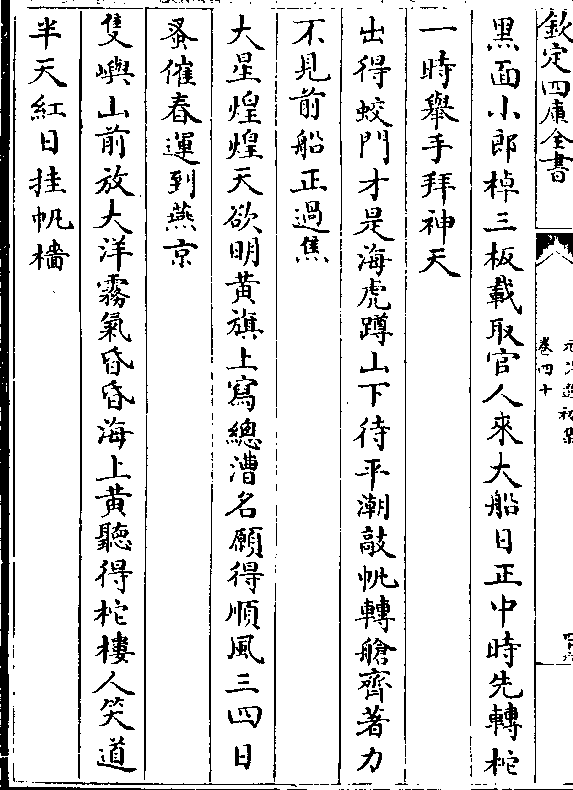 欽定四庫全書
卷四十
黑面小郎棹三板載取官人來大船日正中時先轉柁
一時舉手拜神天
出得蛟門才是海虎蹲山下待平潮敲帆轉艙齊著力
不見前船正過焦
大星煌煌天欲明黃旗上寫總漕名願得順風三四日
蚤催春運到燕京
隻嶼山前放大洋霧氣昏昏海上黃聽得柁樓人笑道
半天紅日挂帆檣